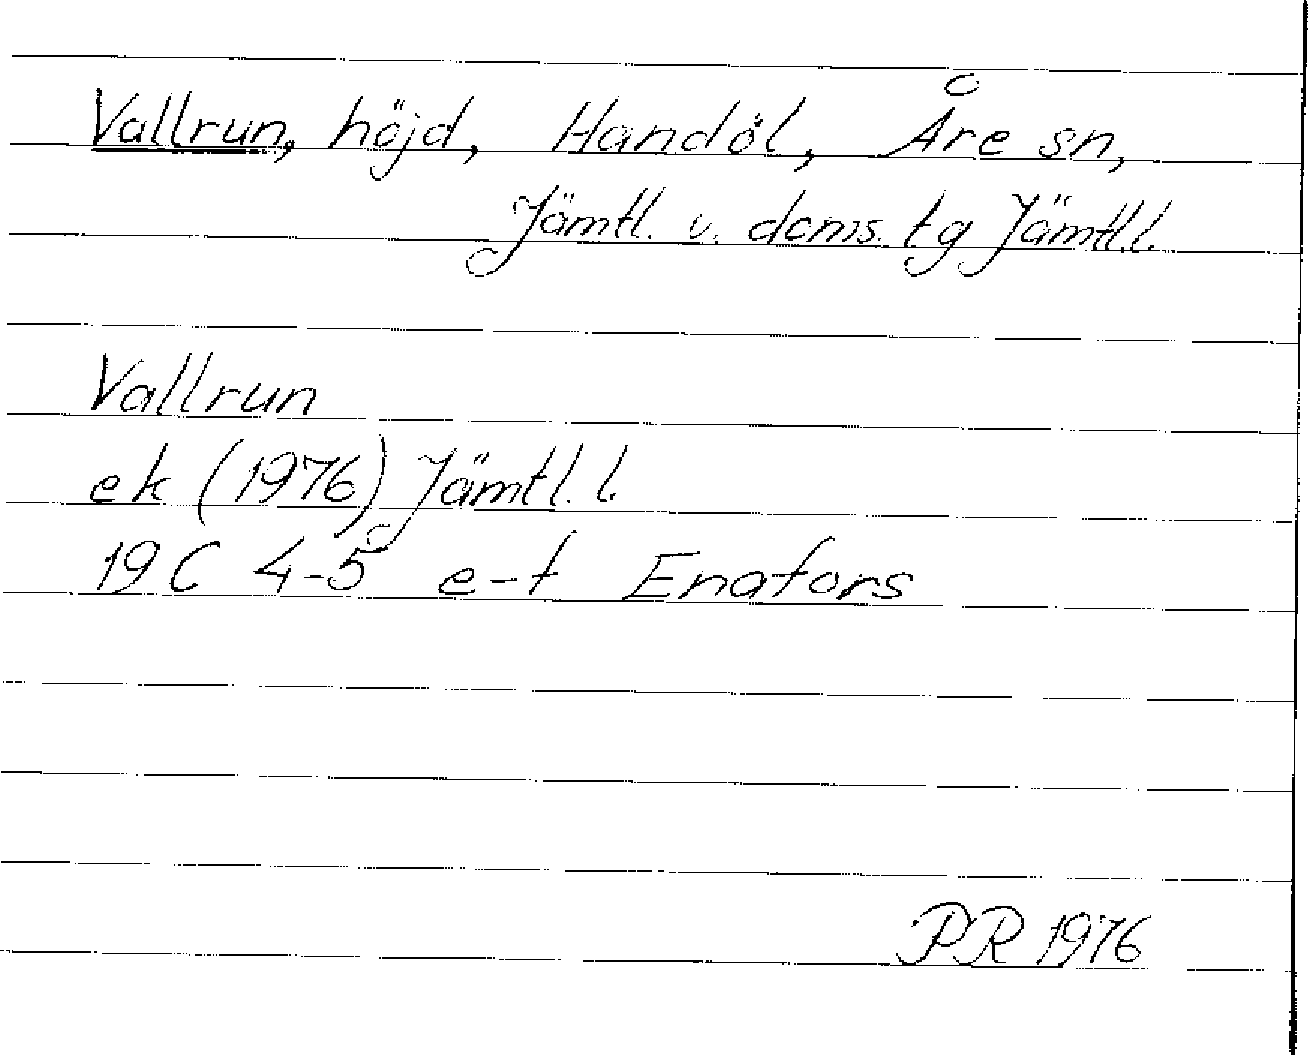 Vallrun, höjd, Handöl, Åre sn,
Jämtl. v. doms. tg Jämtl.l.
Vallrun
ek (1976) Jämtl. l.
19C 4-5 e-f Enafors
PR 1976